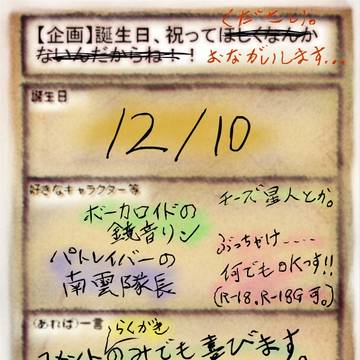 【企画】誕生日、祝ってほしくなんか
ください。
ないんだからね！！
おながいします...
誕生日
12/10
好きなキャラクター等
ボーカロイドの
鏡音リン
パトレイバーの
南雲隊長
チーズ星人とか。
ぶっちゃけ....
何でもOKっす!!
(R-18.R-18G可。)
(あれば)一言
らくがき
コメントのみでも喜びます。